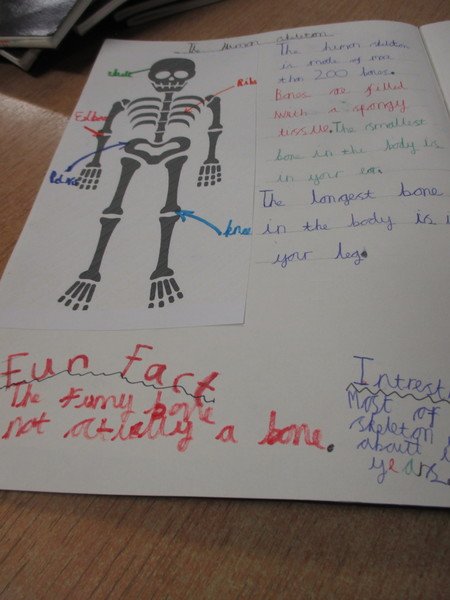 The Human skeleton
Skull
Ribs
Elbow
Pelvis
knee
The human skeleton
is made of more
than 200 bones.
Bones are filled
with a spongy
tissue. The smallest
bone in the body is
in your ear.
The longest bone
in the body is i
your leg.
Fun Fact
The Funny bone
not actually a bone.
Intrest
Most of
skeleton
about
years.